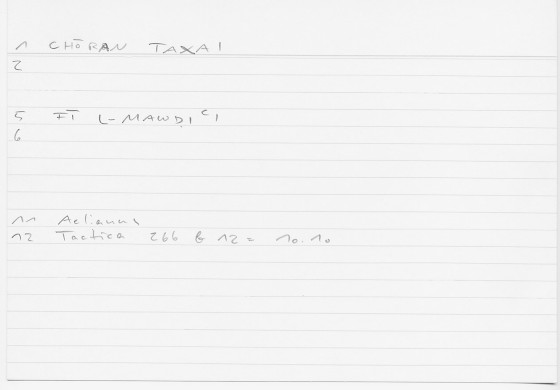 1 CHŌRAN TAXAI
2
5 FĪ L-MAWḌIʿI
6
11 Aelianus
12 Tactica 266 B 12 = 10.10